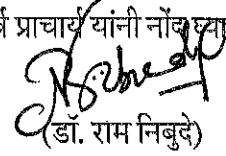 र्व प्राचार्य यांनी नोंद घ्या
(डॉ. राम निबुदे)